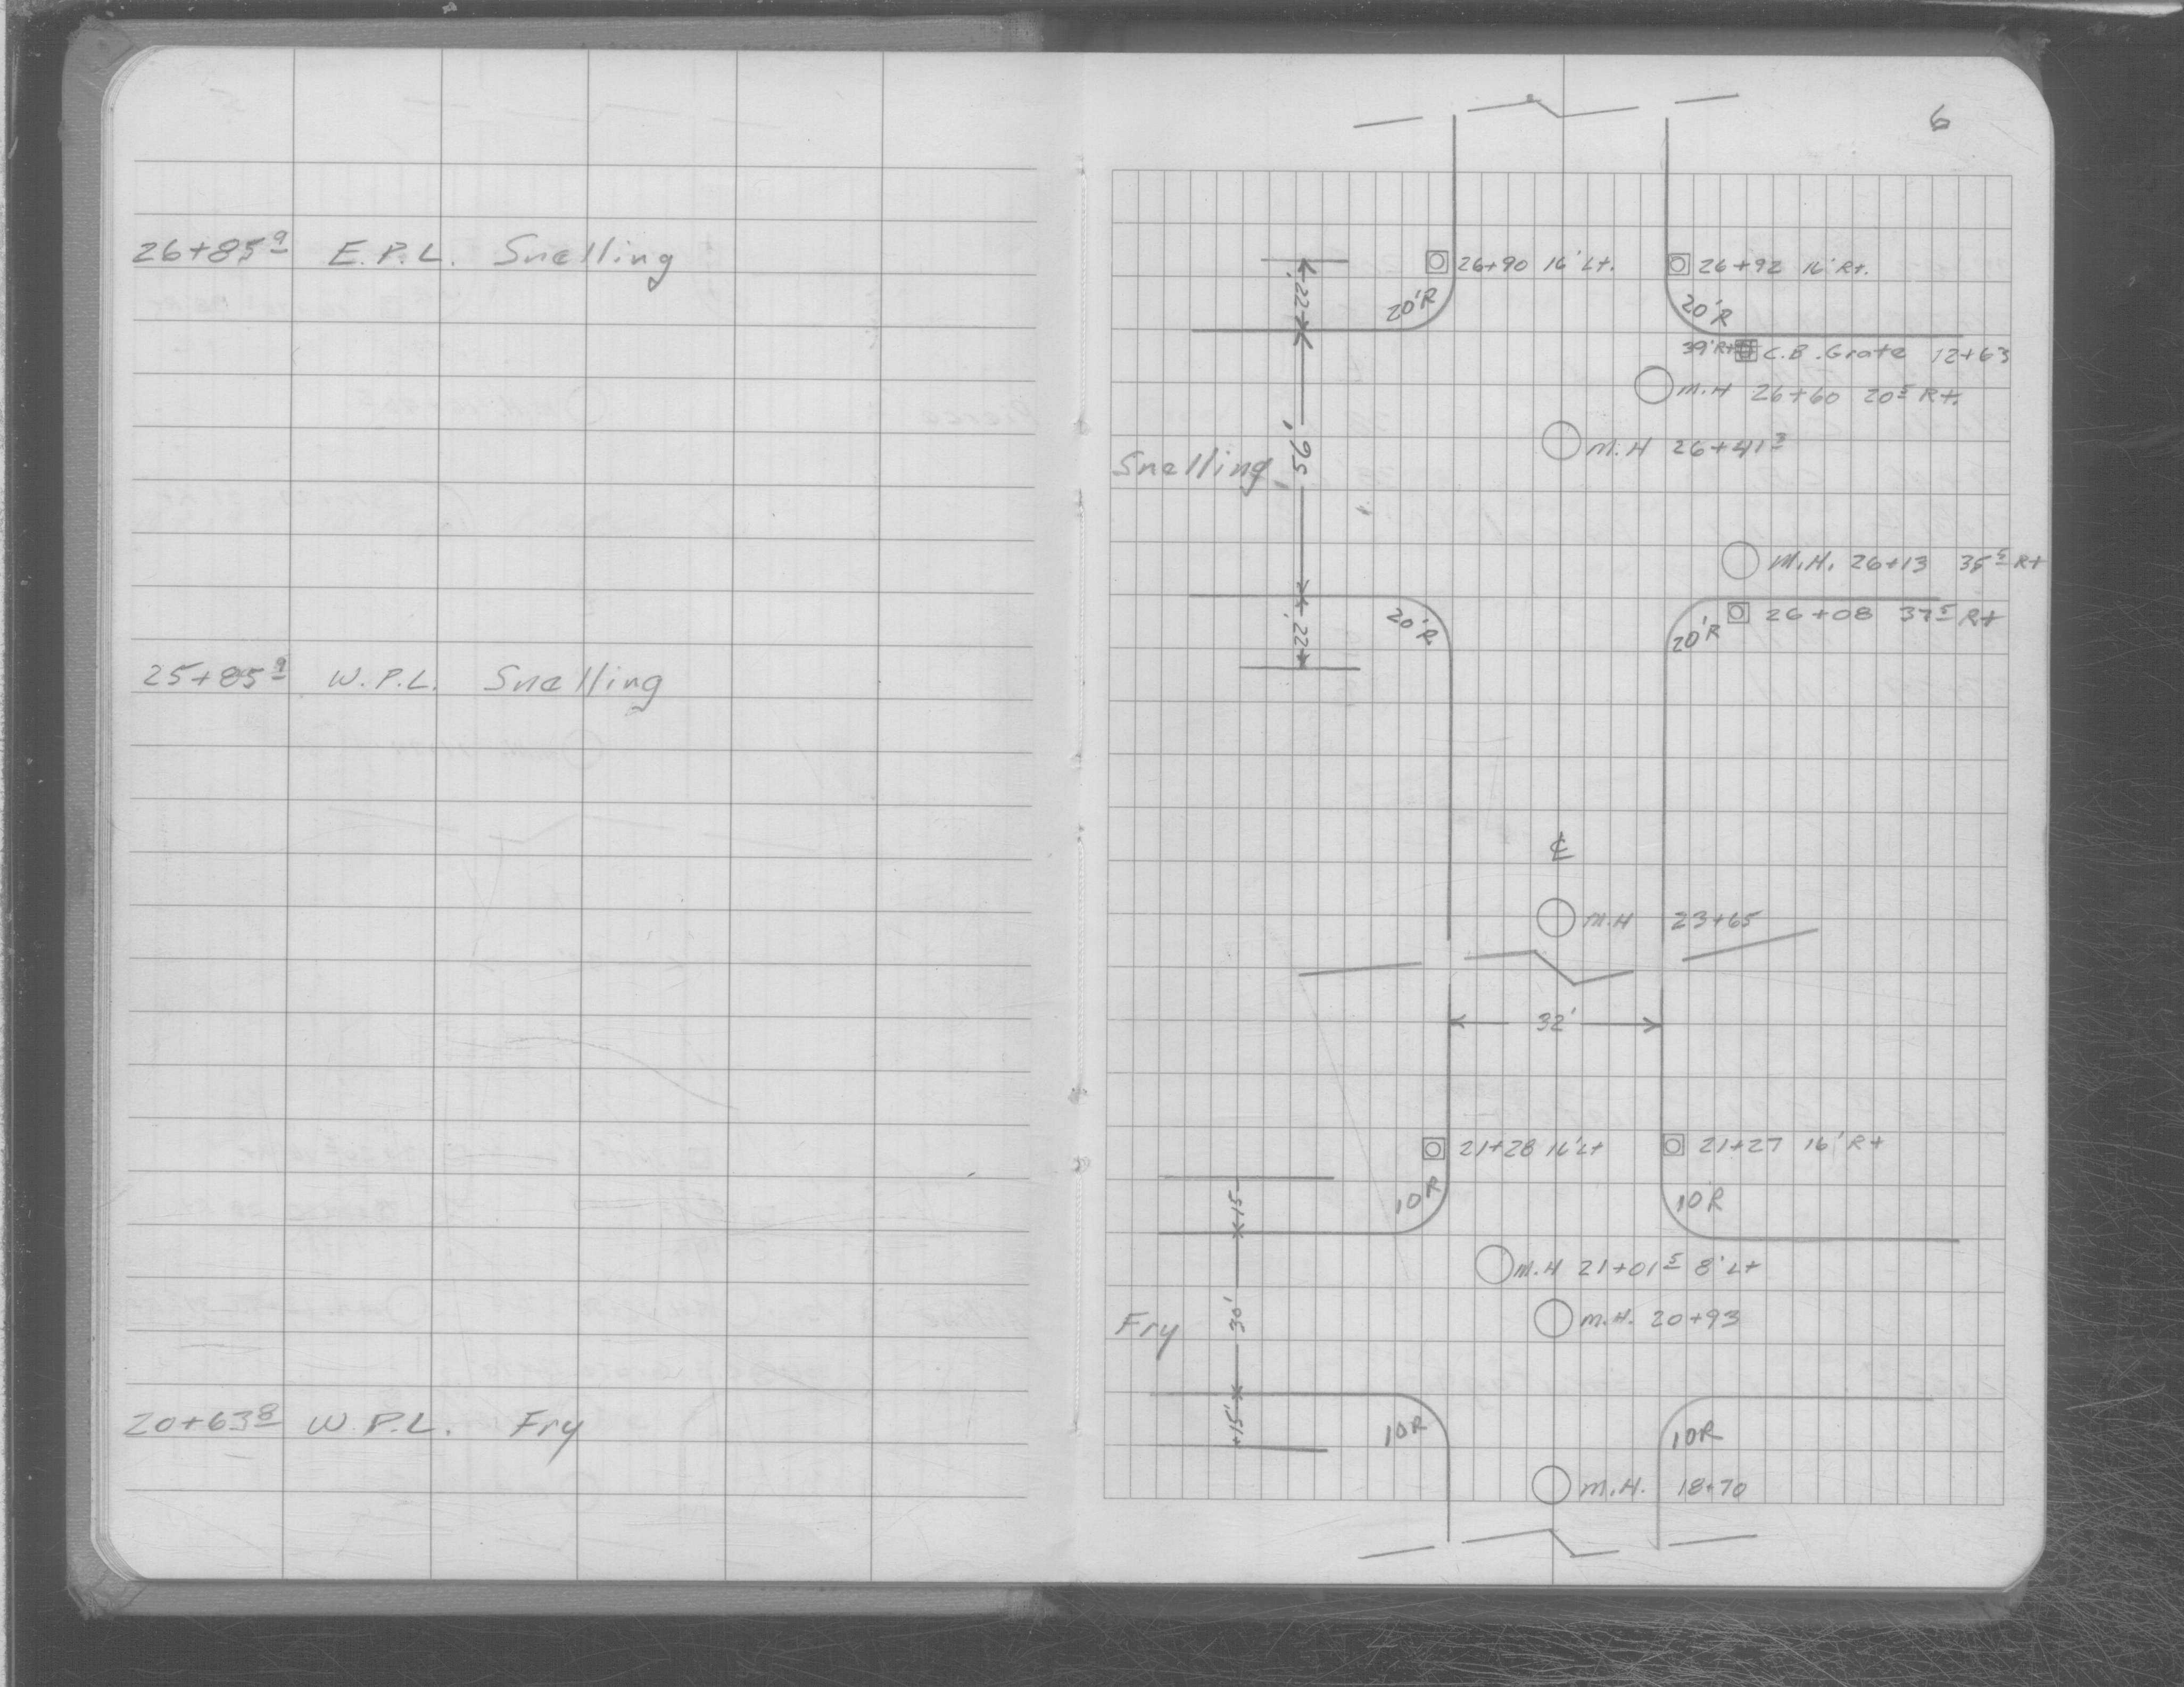 26+85⁹ E.P.L. Snelling
25+85⁹ W.P.L. Snelling
20+63⁸ W.P.L. Fry
6
22'
20'R
26+90 16' Lt.
26+92 16' Rt.
20'R
39'Rt C.B. Grate 12+63
M.H 26+60 20⁵ Rt.
M.H 26+41³
Snelling
56'
M.H. 26+13 35⁵ Rt
26+08 37⁵ Rt
20'R
20'R
22'
℄
M.H 23+65
32'
21+28 16' Lt
21+27 16' Rt
15
10R
10R
M.H 21+01⁵ 8' Lt
M.H. 20+93
Fry
30'
15'
10R
10R
M.H. 18+70